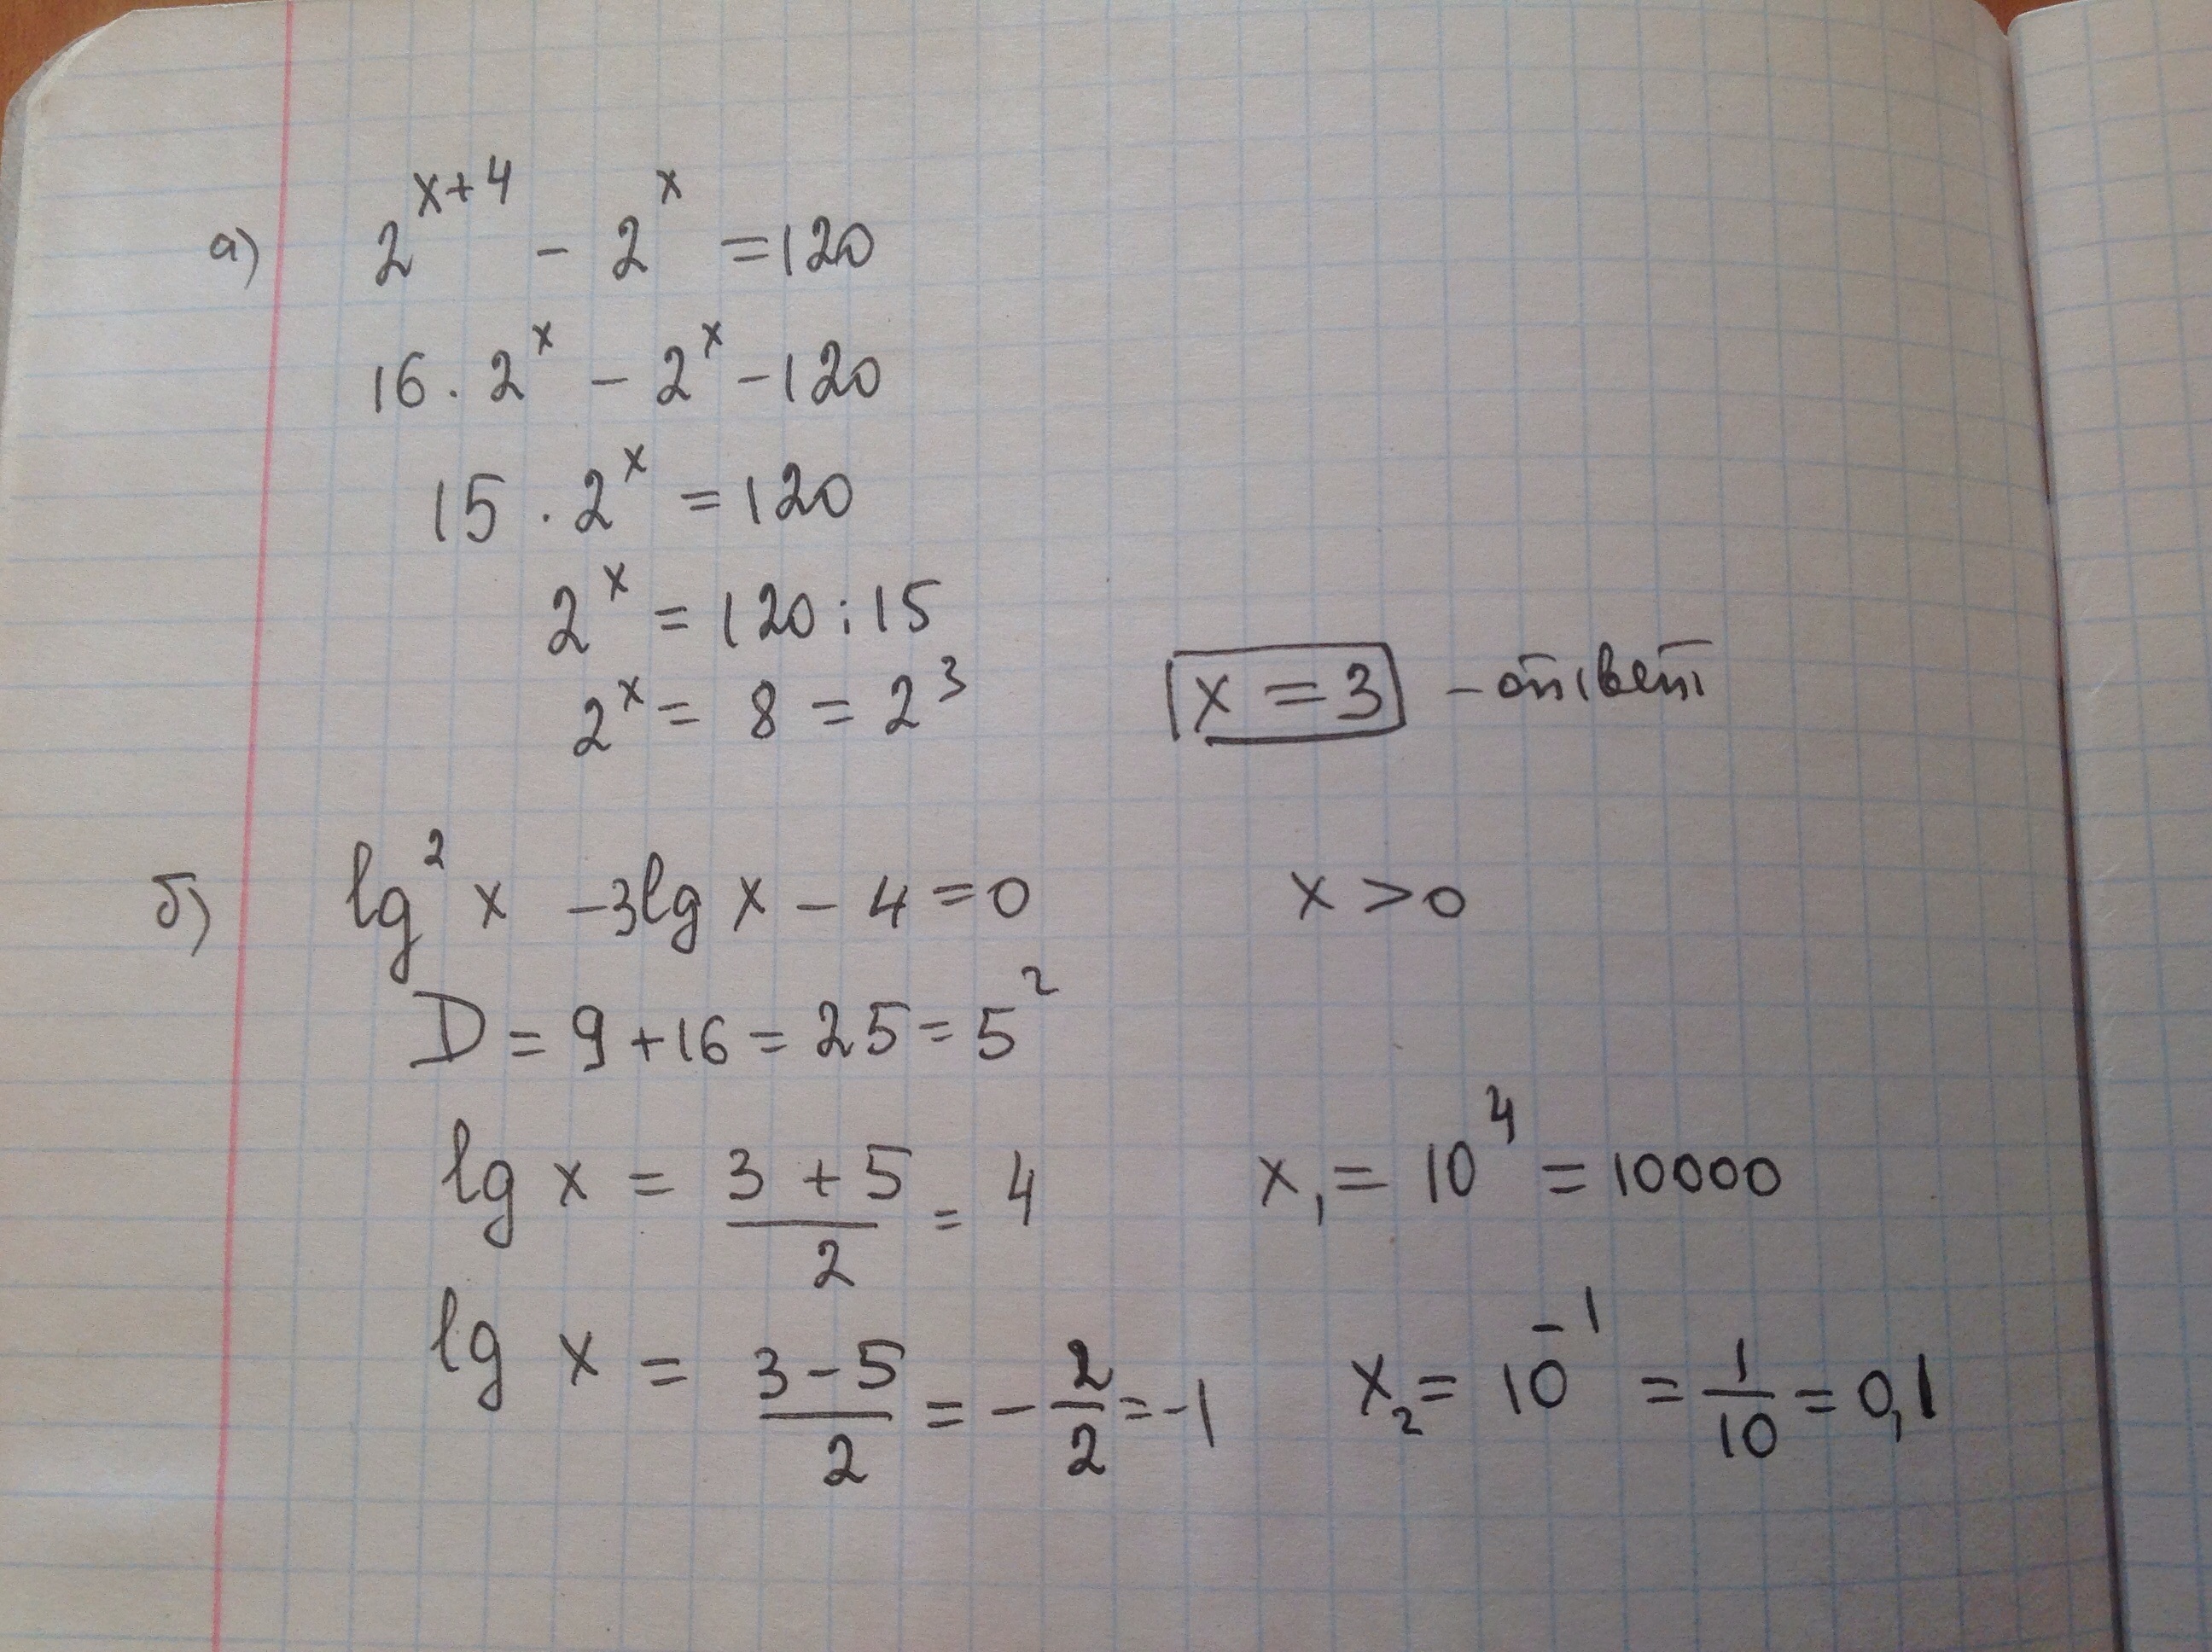 а) 2^{x+4} - 2^x = 120
16 · 2^x - 2^x - 120
15 · 2^x = 120
2^x = 120 : 15
2^x = 8 = 2^3 x = 3 - ответ
б) lg^2 x - 3lg x - 4 = 0 x > 0
D = 9 + 16 = 25 = 5^2
lg x = \frac{3 + 5}{2} = 4 x_1 = 10^4 = 10000
lg x = \frac{3 - 5}{2} = -\frac{2}{2} = -1 x_2 = 10^{-1} = \frac{1}{10} = 0,1